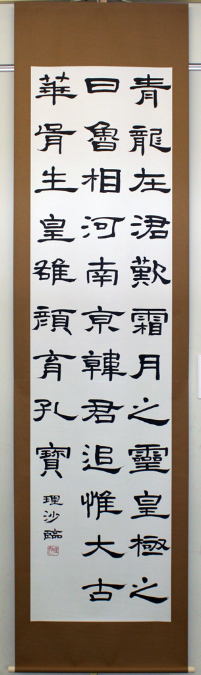 青龍在涒歎霜月之靈皇極之
日魯相河南京韓君追惟大古
華胥生皇雄顏育孔寶
理沙臨